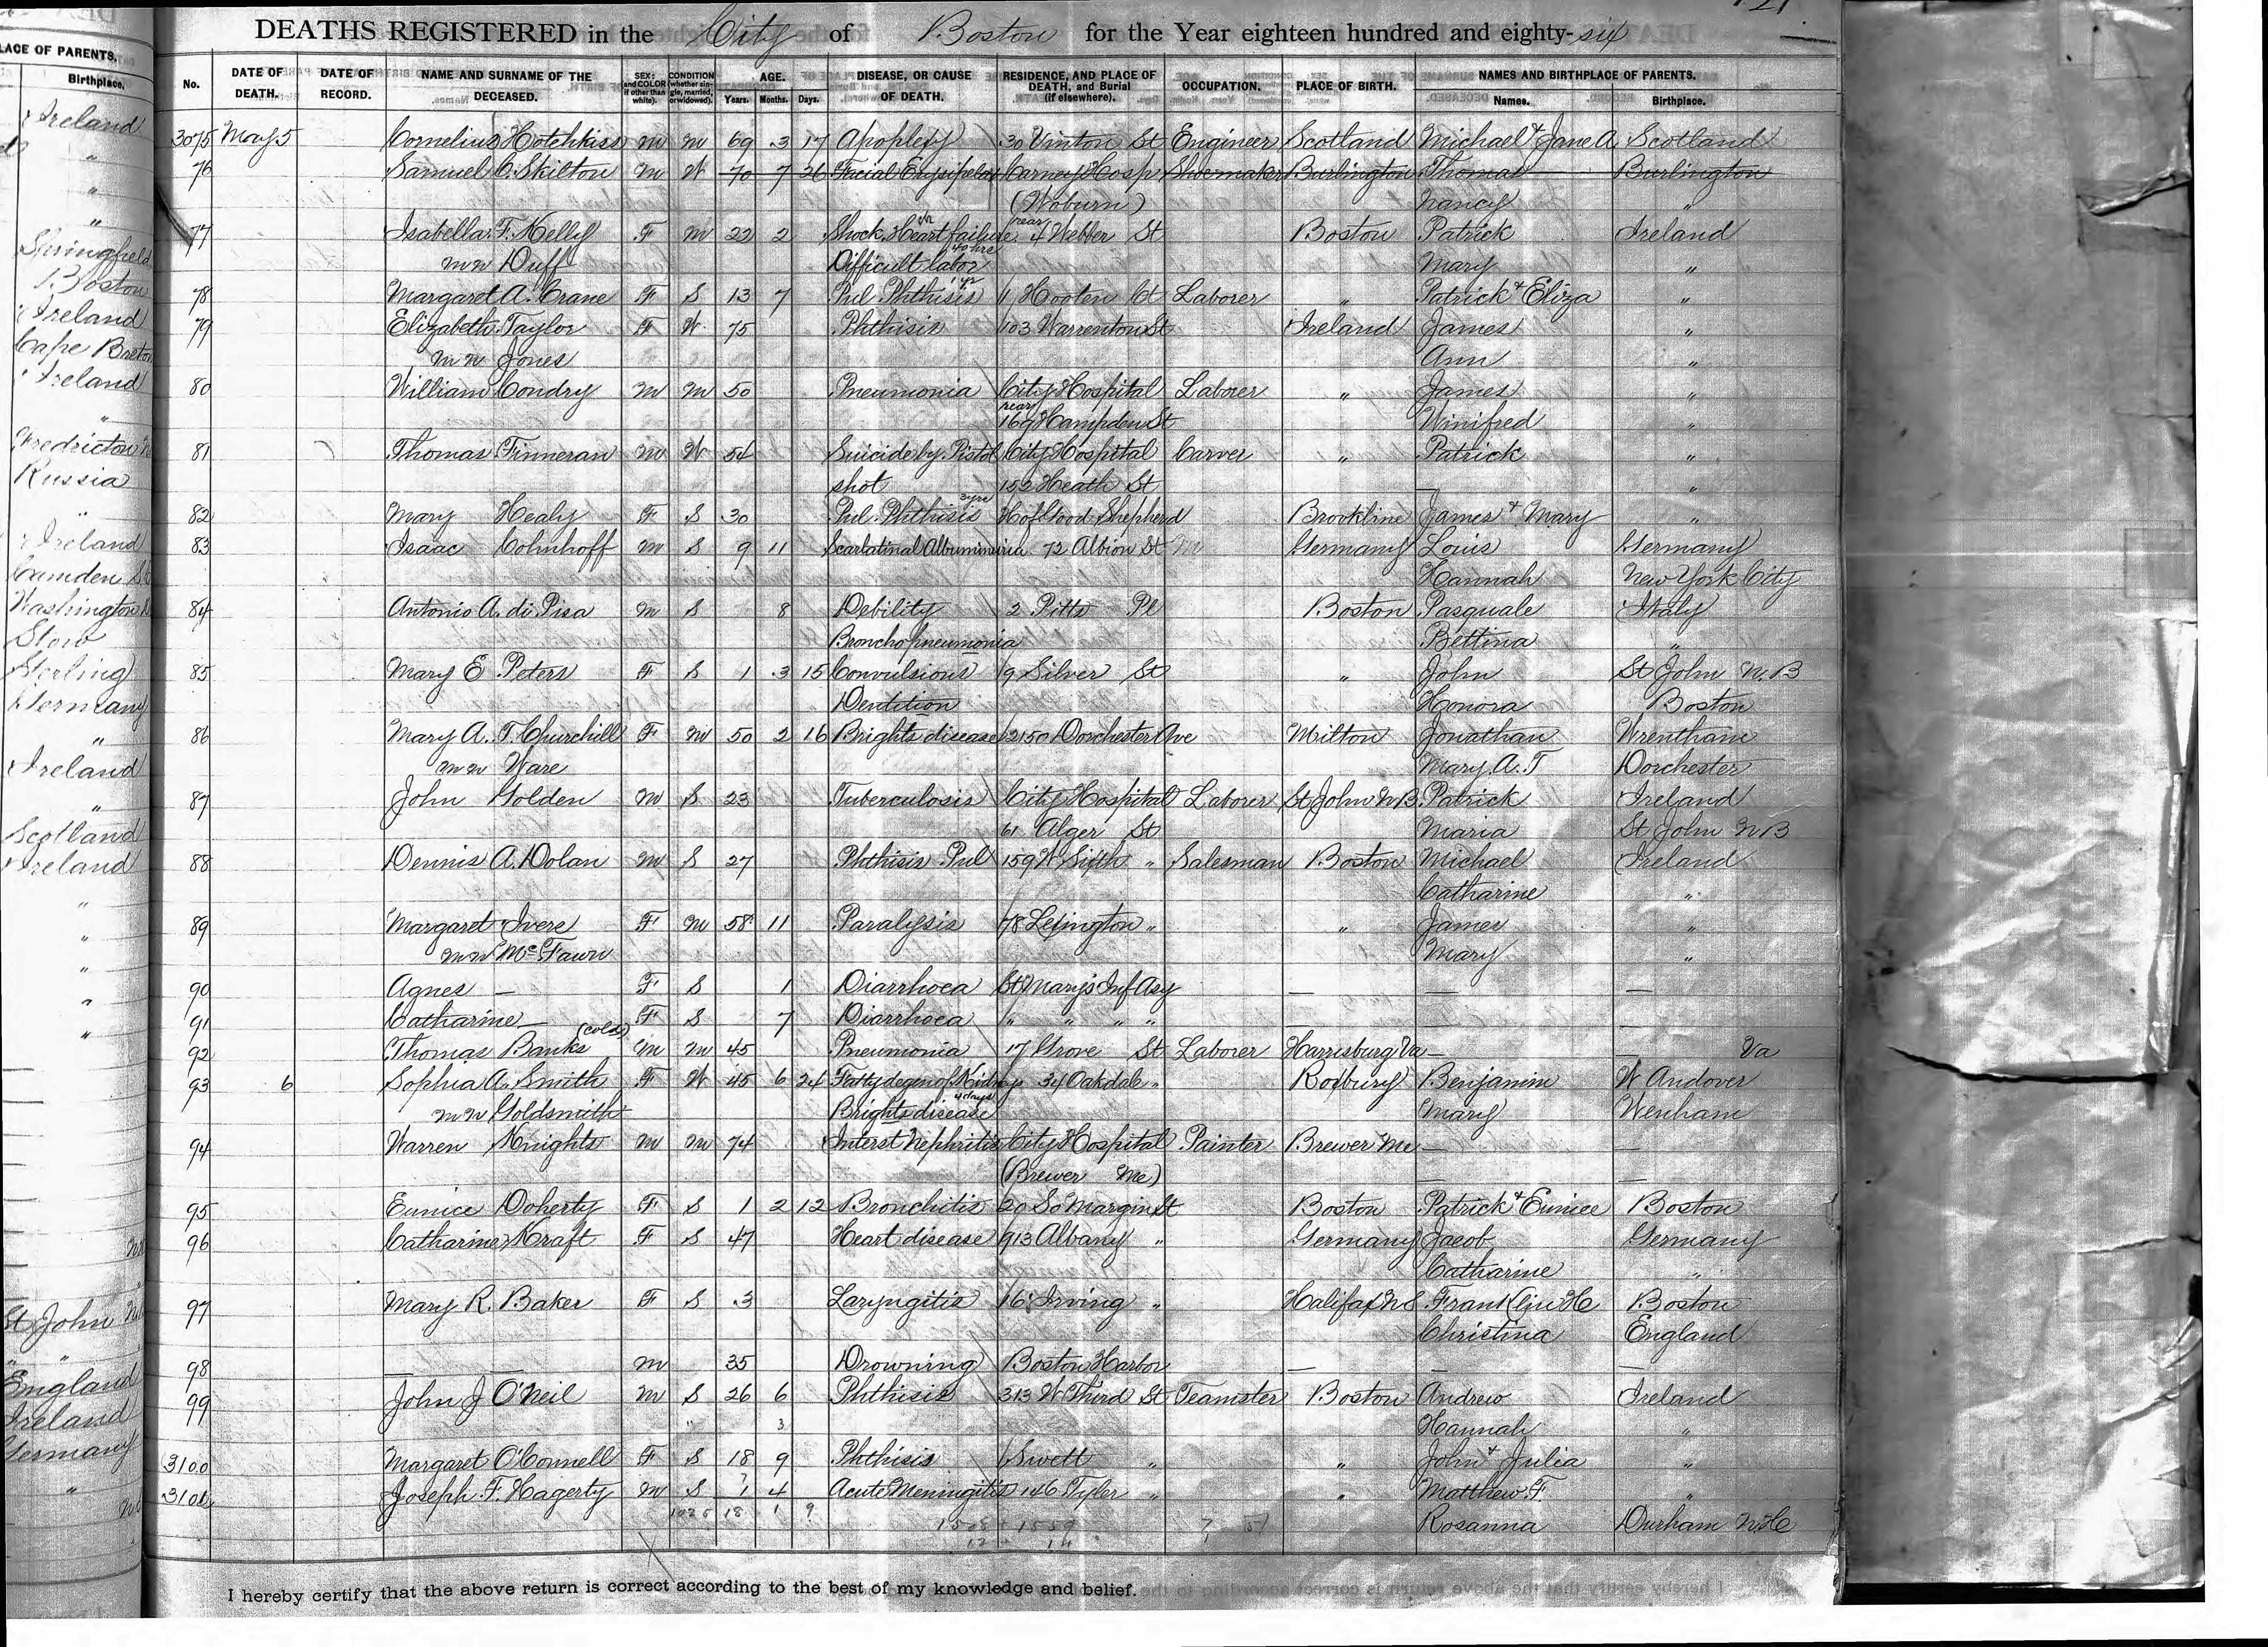 DEATHS REGISTERED in the City of Boston for the Year eighteen hundred and eighty-six
PLACE OF PARENTS.
Birthplace.
Ireland
"
"
"
Springfield
Boston
Ireland
Cape Breton
Ireland
"
Fredricton
Russia
"
Ireland
Camden
Washington
Stow
Sterling
Germany
"
Ireland
"
Scotland
Ireland
"
"
"
"
"
St John
" "
England
Ireland
Germany
"
No. DATE OF DEATH. DATE OF RECORD. NAME AND SURNAME OF THE DECEASED. SEX; and COLOR (if other than white). CONDITION (whether single, married, or widowed). AGE. Years. Months. Days. DISEASE, OR CAUSE OF DEATH. RESIDENCE, AND PLACE OF DEATH, and Burial (if elsewhere). OCCUPATION. PLACE OF BIRTH. NAMES AND BIRTHPLACE OF PARENTS. Names. Birthplace.
3075 May 5 Cornelius Hotchkiss M M 69 3 17 Apoplexy 30 Vinton St Engineer Scotland Michael & Jane A Scotland
76 Samuel C. Skilton M W 70 7 26 Facial Erysipelas Carney Hosp Shoemaker Burlington Thomas Burlington
(Woburn) Nancy "
77 Isabella F. Kelly F M 22 2 Shock, Heart failure rear 4 Webber St Boston Patrick Ireland
m n Duff Difficult labor 40 hrs Mary "
78 Margaret A. Crane F S 13 7 Pul. Phthisis 1 yr 11 Hooten Ct Laborer " Patrick & Eliza "
79 Elizabeth Taylor F W 75 Phthisis 103 Warrenton St Ireland James "
m n Jones Ann "
80 William Condry M M 50 Pneumonia City Hospital Laborer " James "
rear 169 Hampden St Winifred "
81 Thomas Finneran M W 54 Suicide by Pistol City Hospital Carver " Patrick "
shot 152 Heath St — "
82 Mary Healy F S 30 Pul. Phthisis 3 yrs H of Good Shepherd Brookline James & Mary "
83 Isaac Cohnhoff M S 9 11 Scarlatinal Albuminuria 72 Albion St Germany Louis Germany
Hannah New York City
84 Antonio A. di Pisa M S 8 Debility 2 Pitts Pl Boston Pasquale Italy
Bronchopneumonia Bettina "
85 Mary E. Peters F S 1 3 15 Convulsions 9 Silver St " John St John N.B
Dentition Honora Boston
86 Mary A. T. Churchill F M 50 2 16 Brights disease 2150 Dorchester Ave Milton Jonathan Wrentham
m n Ware Mary A. T Dorchester
87 John Golden M S 23 Tuberculosis City Hospital Laborer St John N B. Patrick Ireland
61 Alger St Maria St John N B
88 Dennis A. Dolan M S 27 Phthisis Pul 159 W Sixth " Salesman Boston Michael Ireland
Catharine "
89 Margaret Ivers F M 58 11 Paralysis 78 Lexington " " James "
m n McFawn Mary "
90 Agnes — F S 1 Diarrhoea St Mary's Inf Asy — — —
91 Catharine — F S 7 Diarrhoea " " " " — — —
92 Thomas Banks (cold) M M 45 Pneumonia 17 Grove St Laborer Harrisburg Va — — Va
93 6 Sophia A. Smith F W 45 6 24 Fatty degen of Kidneys 34 Oakdale " Roxbury Benjamin W Andover
m n Goldsmith Brights disease 4 days Mary Wenham
94 Warren Knights M M 74 Interst Nephritis City Hospital Painter Brewer Me — —
(Brewer Me) — —
95 Eunice Doherty F S 1 2 12 Bronchitis 20 So Margin St Boston Patrick & Eunice Boston
96 Catharine Kraft F S 47 Heart disease 913 Albany " Germany Jacob Germany
Catharine "
97 Mary R. Baker F S 3 Laryngitis 16 Irving " Halifax N S Franklin H Boston
Christina England
98 — M 35 Drowning Boston Harbor — — —
99 John J O'Neil M S 26 6 Phthisis 313 W Third St Teamster Boston Andrew Ireland
" 3 Hannah "
3100 Margaret O'Connell F S 18 9 Phthisis Swett " " John & Julia "
3101 Joseph F. Hagerty M S 1 4 Acute Meningitis 146 Tyler " " Matthew F. "
Rosanna Durham N.H
I hereby certify that the above return is correct according to the best of my knowledge and belief.